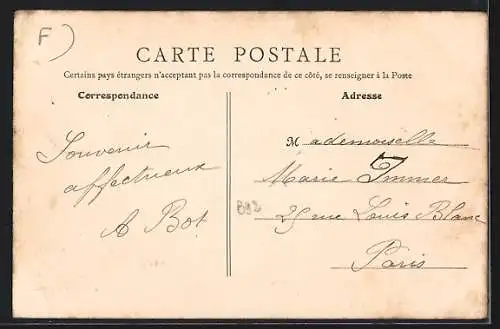 F)
CARTE POSTALE
Certains pays étrangers n'acceptant pas la correspondance de ce côté, se renseigner à la Poste
Correspondance
Adresse
Souvenir
affectueux
A Bot
Mademoiselle
Marie Immer
25 rue Louis Blanc
Paris
B92